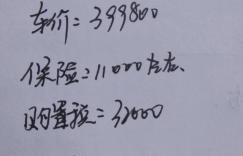 车价=399800
保险=11000左右、
购置税=32000